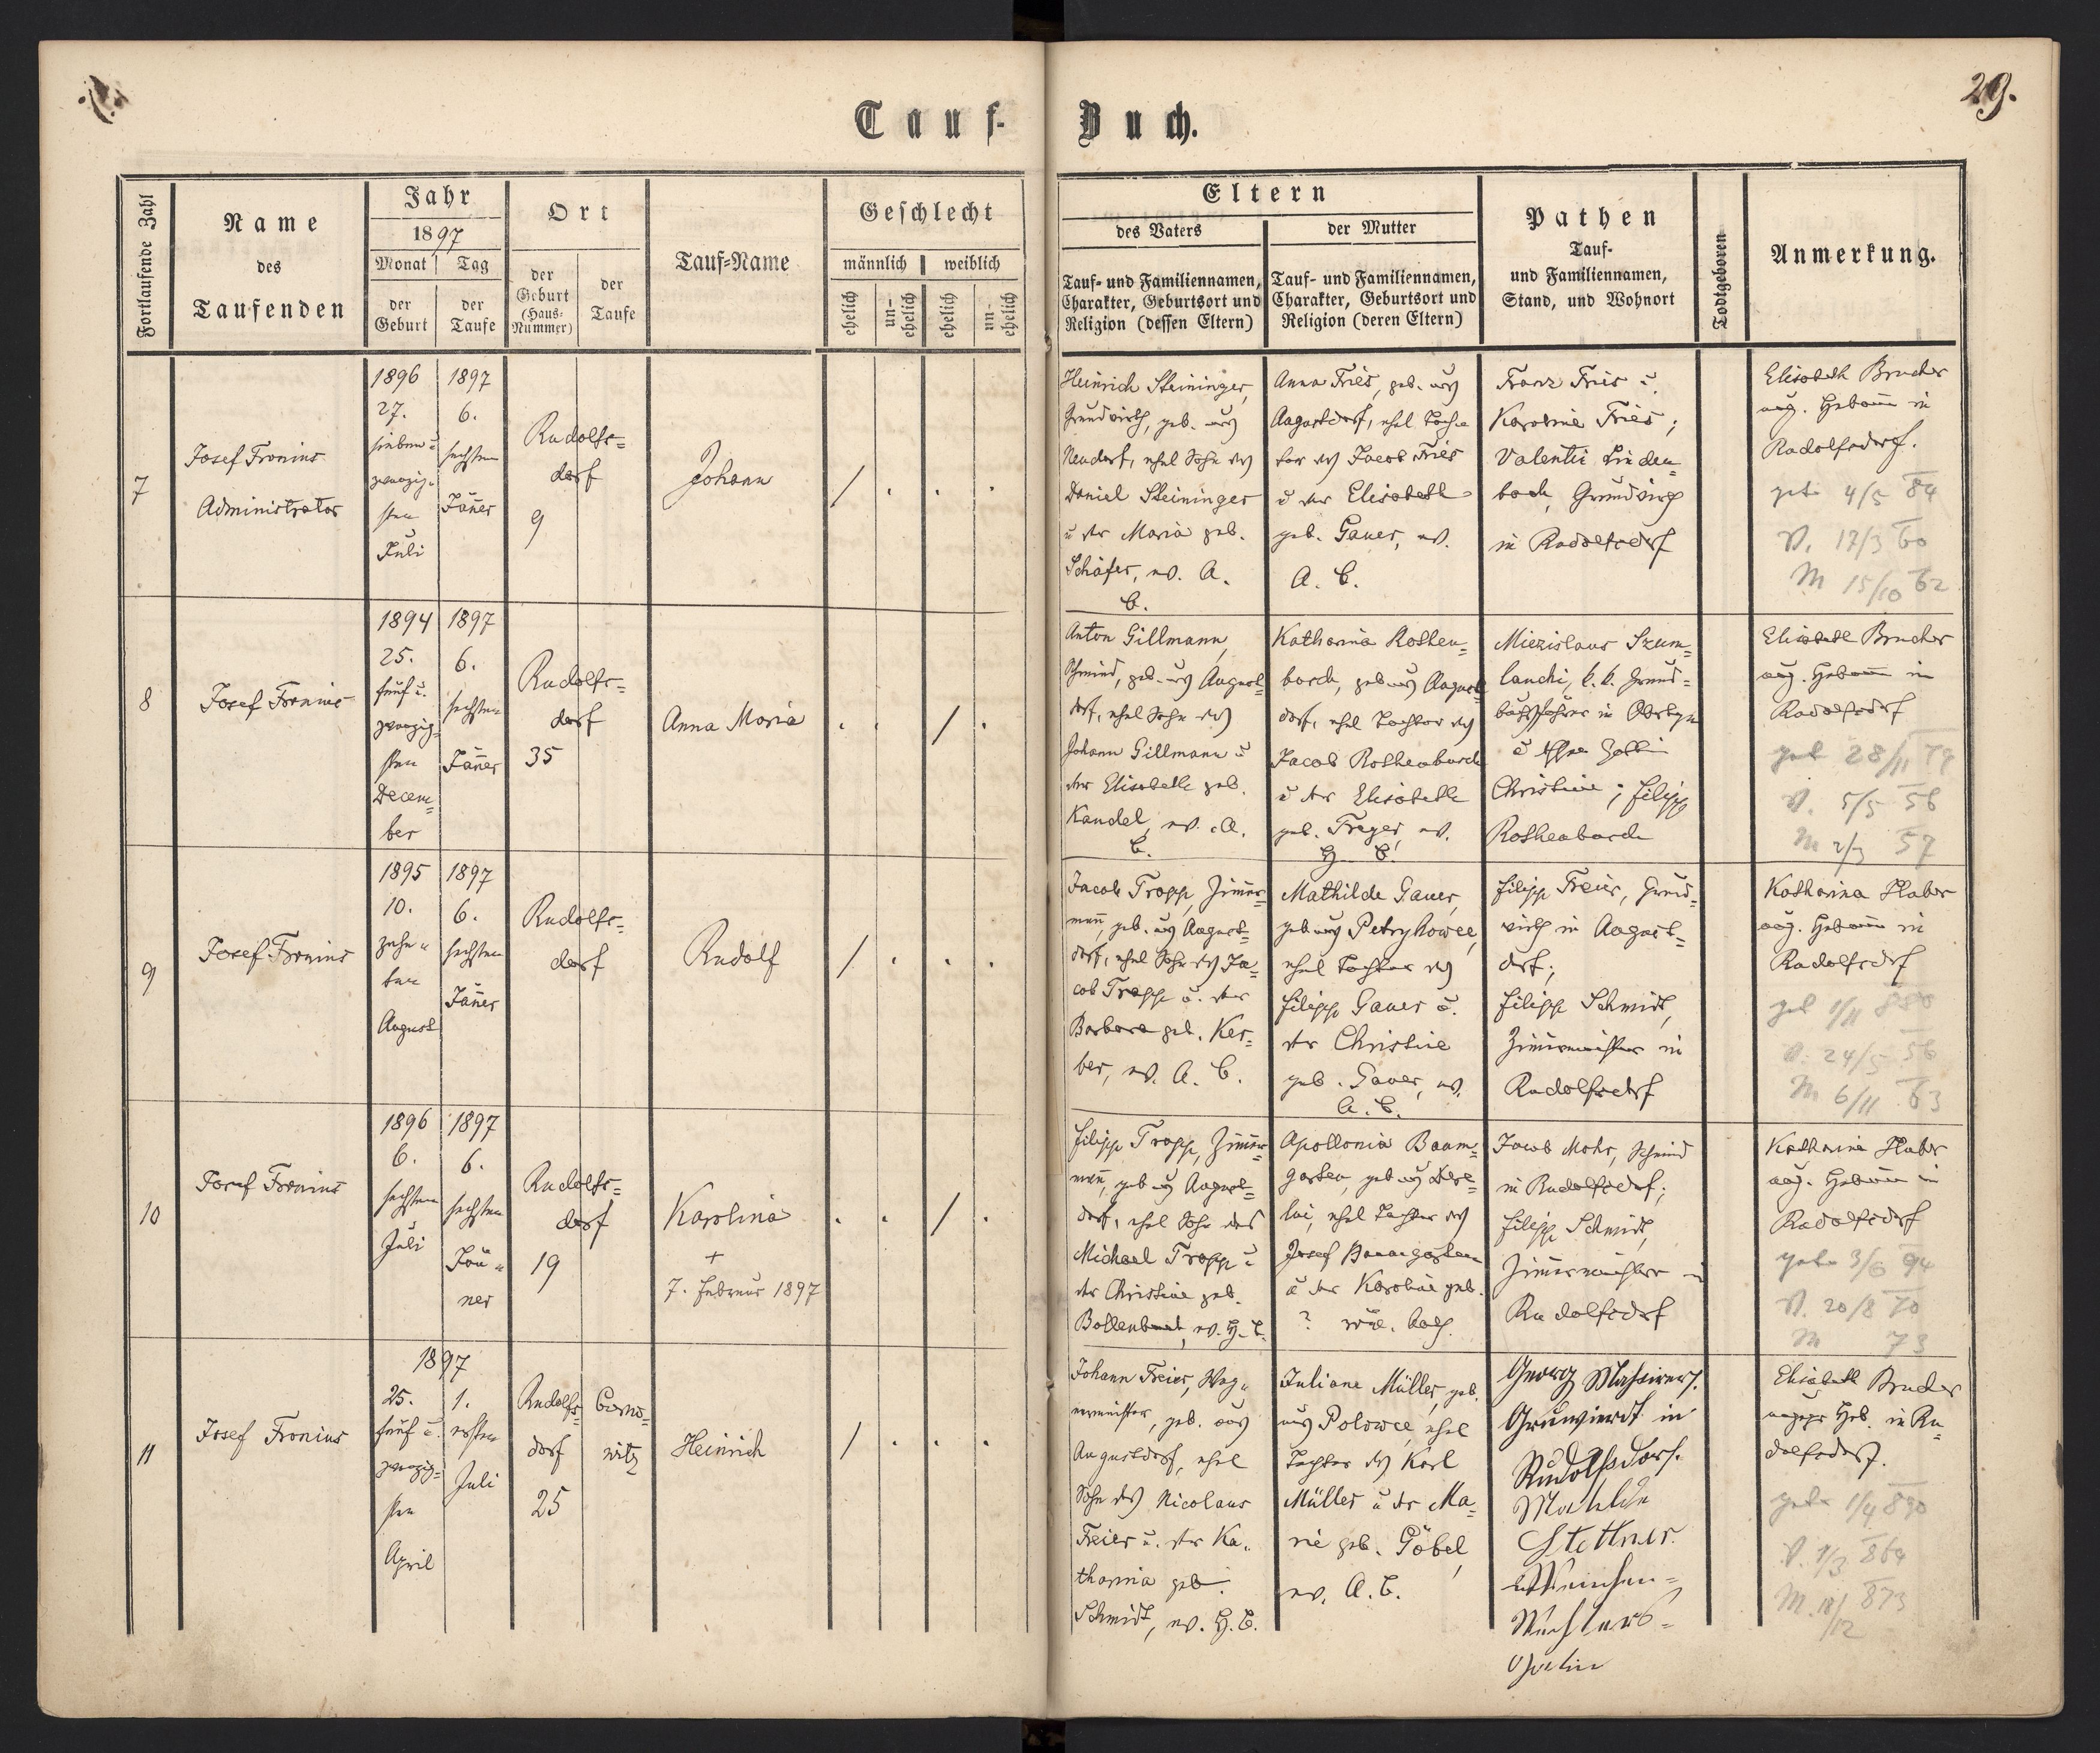 29.
Tauf-Buch.
Fortlaufende Zahl
Name
des
Taufenden
Jahr
1897
Monat
Tag
der
Geburt
der
Taufe
Ort
der
Geburt
(Haus-
Nummer)
der
Taufe
Tauf-Name
Geschlecht
männlich
weiblich
ehelich
un-
ehelich
ehelich
un-
ehelich
Eltern
des Vaters
der Mutter
Tauf- und Familiennamen,
Charakter, Geburtsort und
Religion (dessen Eltern)
Tauf- und Familiennamen,
Charakter, Geburtsort und
Religion (deren Eltern)
Pathen
Tauf-
und Familiennamen,
Stand, und Wohnort
Todtgeboren
Anmerkung.
7
Josef Fronius
Administrator
1896
27.
sieben u
zwanzig-
sten
Juli
1897
6.
sechsten
Jänner
Rudolfs=
dorf
9
Johann
/ . . .
Heinrich Steininger,
Grundwirth, geb. aus
Neudorf, ehel Sohn des
Daniel Steininger
u der Maria geb.
Schäfer, ev. A.
C.
Anna Fries, geb. aus
Augustdorf, ehel Toch=
ter des Jacob Fries
u der Elisabeth
geb. Gauer, ev.
A. C.
Franz Fries u.
Karoline Fries;
Valentin Linden=
bach, Grundwirth
in Rudolfsdorf
Elisabeth Brucher
aug. Hebamme in
Rudolfsdorf.
getr 4/5 84
V. 17/3 60
M 15/10 62
8
Josef Fronius
1894
25.
fünf u.
zwanzig-
sten
Decem=
ber
1897
6.
sechsten
Jänner
Rudolfs=
dorf
35
Anna Maria
. . / .
Anton Gillmann,
Schmied, geb. aus August=
dorf, ehel Sohn des
Johann Gillmann u
der Elisabeth geb.
Kandel, ev. A.
C.
Katharina Rothen=
busch, geb aus August=
dorf, ehel Tochter des
Jacob Rothenbusch
u der Elisabeth
geb. Freyer, ev.
H. C.
Miezislaus Szum=
lanchi, k. k. Grund=
buchsführer in Obertyn
Christine; Filipp
Rothenbusch
Elisabeth Brucher
aug. Hebamme in
Rudolfsdorf
V. 5/5 56
M 2/3 57
9
Josef Fronius
1895
10.
zehn-
ten
August
1897
6.
sechsten
Jänner
Rudolfs=
dorf
Rudolf
/ . . .
Jacob Tropp, Zimmer=
mann, geb. aus August=
dorf, ehel Sohn des Ja=
cob Tropp u. der
Barbara geb. Ker=
ber, ev. A. C.
Mathilde Gauer,
geb aus Petryhowce,
ehel Tochter des
Filipp Gauer u.
der Christine
geb. Gauer, ev.
A. C.
Filipp Freier, Grund=
wirth in August=
dorf;
Filipp Schmidt,
Zimmermeister in
Rudolfsdorf
Katharina Huber
aug. Hebamme in
Rudolfsdorf
V. 24/5 56
M 6/11 63
10
Josef Fronius
1896
6.
sechsten
Juli
1897
6.
sechsten
Jän-
ner
Rudolfs=
dorf
19
Karolina
+
7. Februar 1897
. . / .
Filipp Tropp, Zimmer=
mann, geb aus August=
dorf, ehel Sohn des
Michael Tropp u
der Christine geb.
ev. H. C.
Apollonia Baum=
garten, geb aus
ehel Tochter des
Josef Baumgarten
u der Karoline geb.
? röm. kath.
Jacob Mohr, Schmied
in Rudolfsdorf;
Filipp Schmidt,
Zimmermeister in
Rudolfsdorf
Katharina Huber
aug. Hebamme in
Rudolfsdorf
getr 3/6 94
V. 20/8 70
M 73
11
Josef Fronius
1897
25.
fünf u.
zwanzig-
sten
April
1.
ersten
Juli
Rudolfs=
dorf
25
Czerno=
witz
Heinrich
/ . . .
Johann Freier, Wag-
nermeister, geb. aus
Augustdorf, ehel
Sohn des Nicolaus
Freier u. der Ka-
tharina geb.
Schmidt, ev. H. C.
Juliane Müller, geb.
aus Polowce, ehel
Tochter des Karl
Müller u der Ma=
rie geb. Göbel,
ev. A. C.
Georg
in
Rudolfsdorf.
Mathilde
Stettner
Elisabeth Brucher
Heb. in Ru=
dolfsdorf.
V. 1/3 864
M. 18/12 873